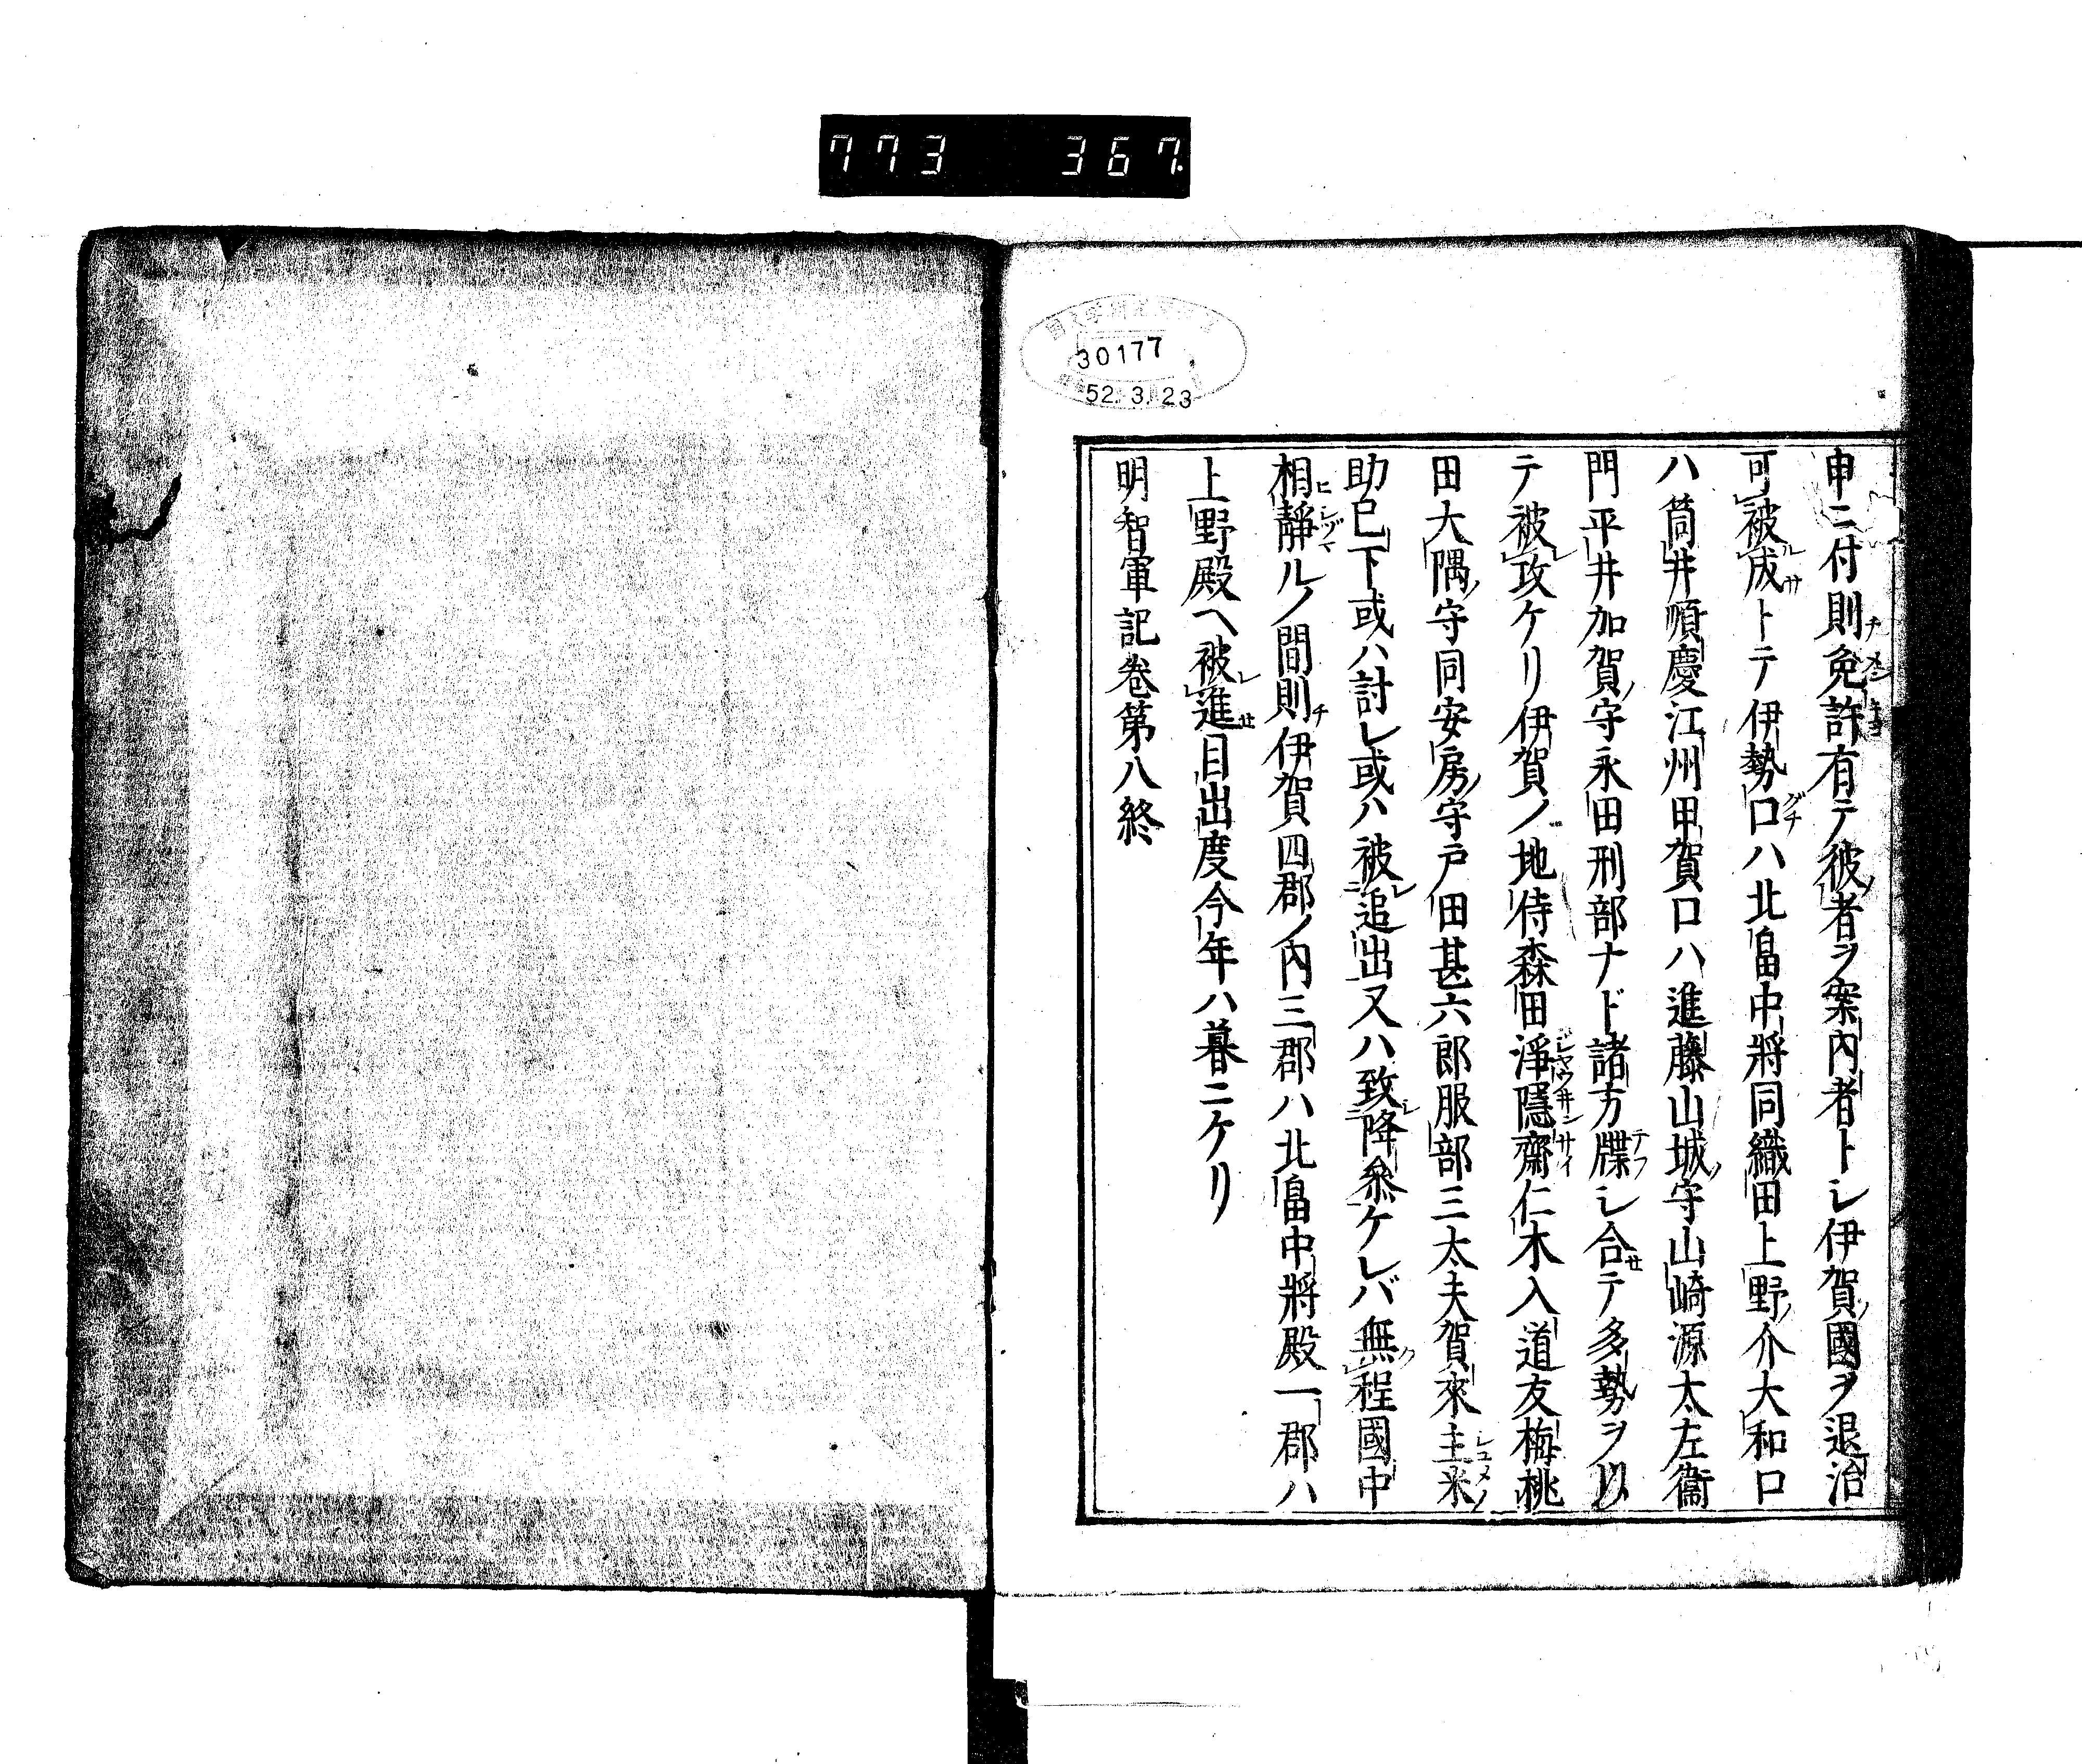 773 367.
30177
52.3.23
申ニ付則免許有テ彼者ヲ案内者トシ伊賀國ヲ退治
可被成トテ伊勢口ハ北畠中將同織田上野介大和口
ハ筒井順慶江州甲賀口ハ進藤山城守山崎源太左衞
門平井加賀守永田刑部ナド諸方牒シ合テ多勢ヲ以
テ被攻ケリ伊賀ノ地侍森田淨隱齋仁木入道友梅桃
田大隅守同安房守戸田甚六郎服部三太夫賀來主米
助已下或ハ討レ或ハ被追出又ハ致降參ケレバ無程國中
相靜ルノ間則伊賀四郡ノ内三郡ハ北畠中將殿一郡ハ
上野殿ヘ被進目出度今年ハ暮ニケリ
明智軍記巻第八終